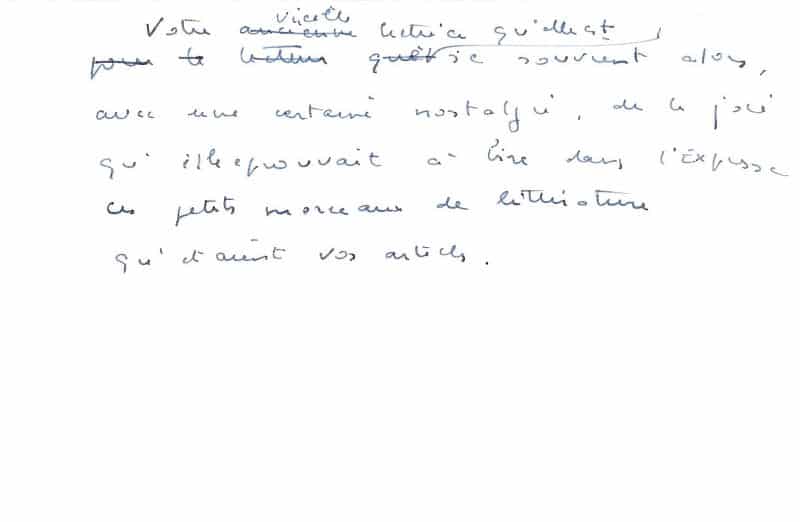 vieille
Votre ancienne lectrice qu'elle est,
pour le lecteur se souvient alors,
avec une certaine nostalgie, de la joie
qu'elle éprouvait à lire dans l'Express
ces petits morceaux de littérature
qu'étaient vos articles.